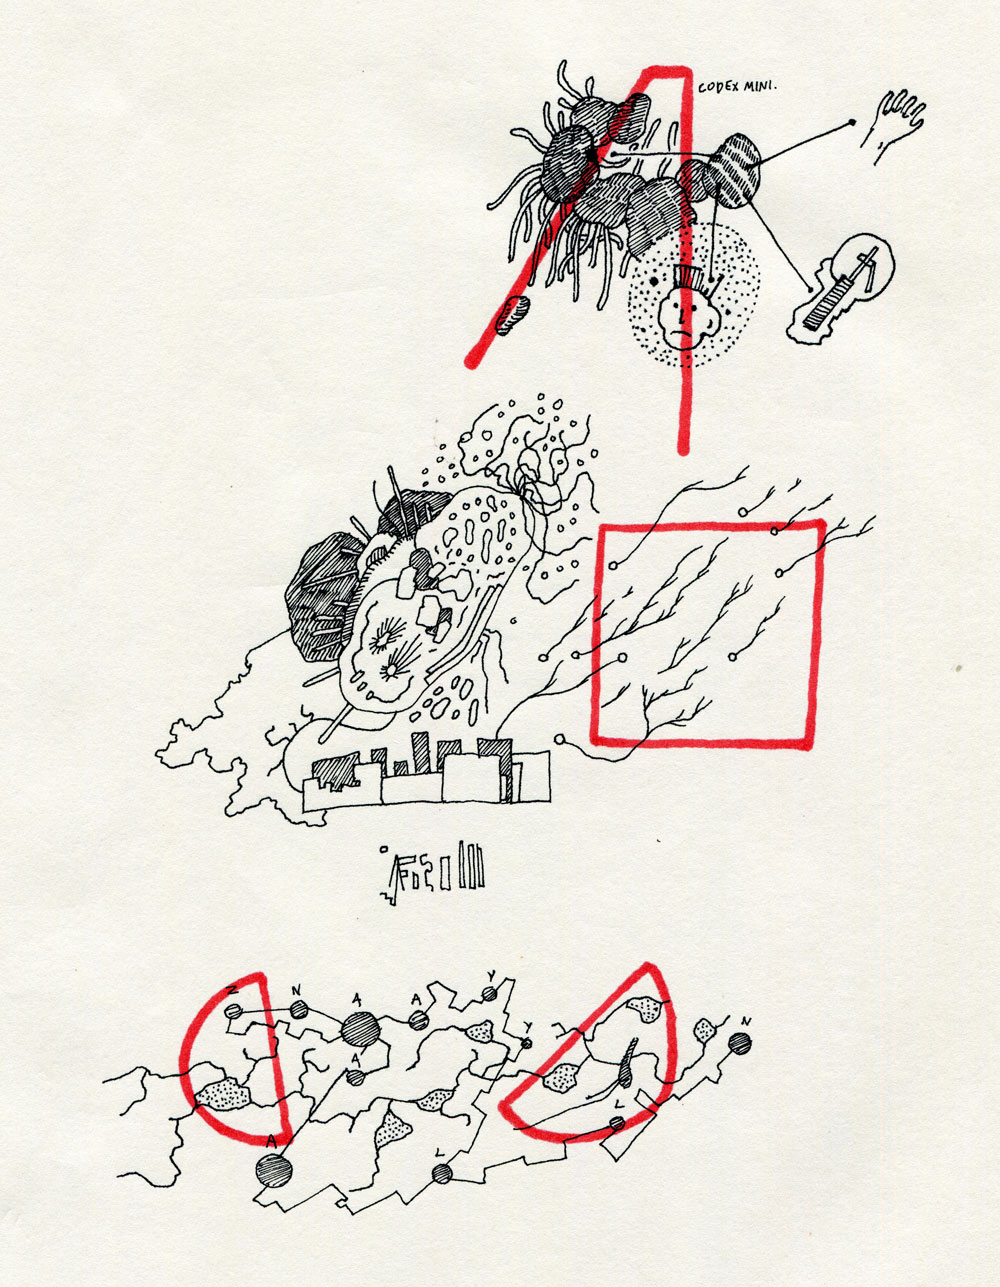 CODEX MINI.
Z N A A Y
A Y N
A L L